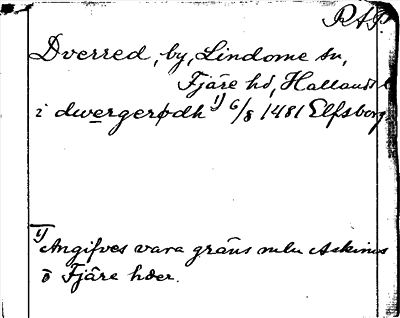 RAP.
Dverred, by, Lindome sn,
Fjäre hd, Hallands l
i dwergerødh 1) 6/8 1481 Elfsborg
1) Angifves vara gräns mln Askims
o Fjäre hder.